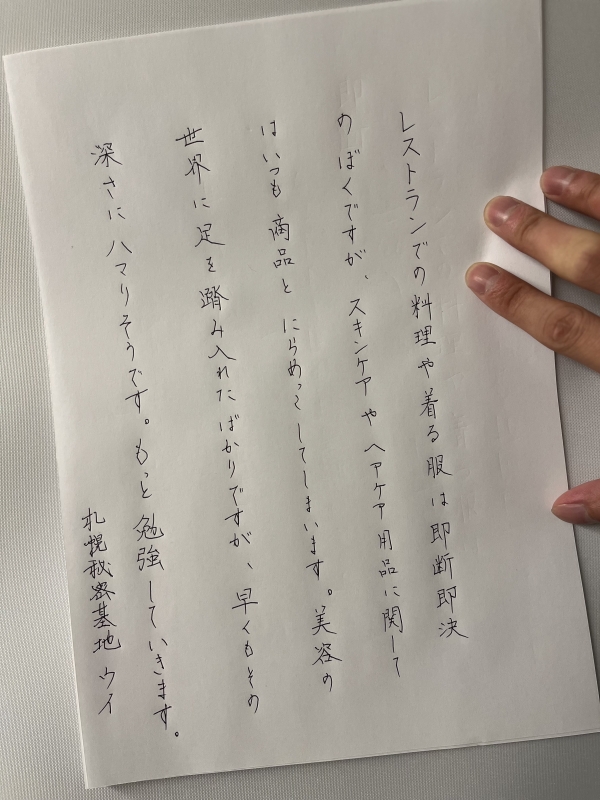 レストランでの料理や着る服は即断即決
のぼくですが、スキンケアやヘアケア用品に関して
はいつも商品とにらめっこしてしまいます。美容の
世界に足を踏み入れたばかりですが、早くもその
深さにハマりそうです。もっと勉強していきます。
札幌秘密基地 ウイ